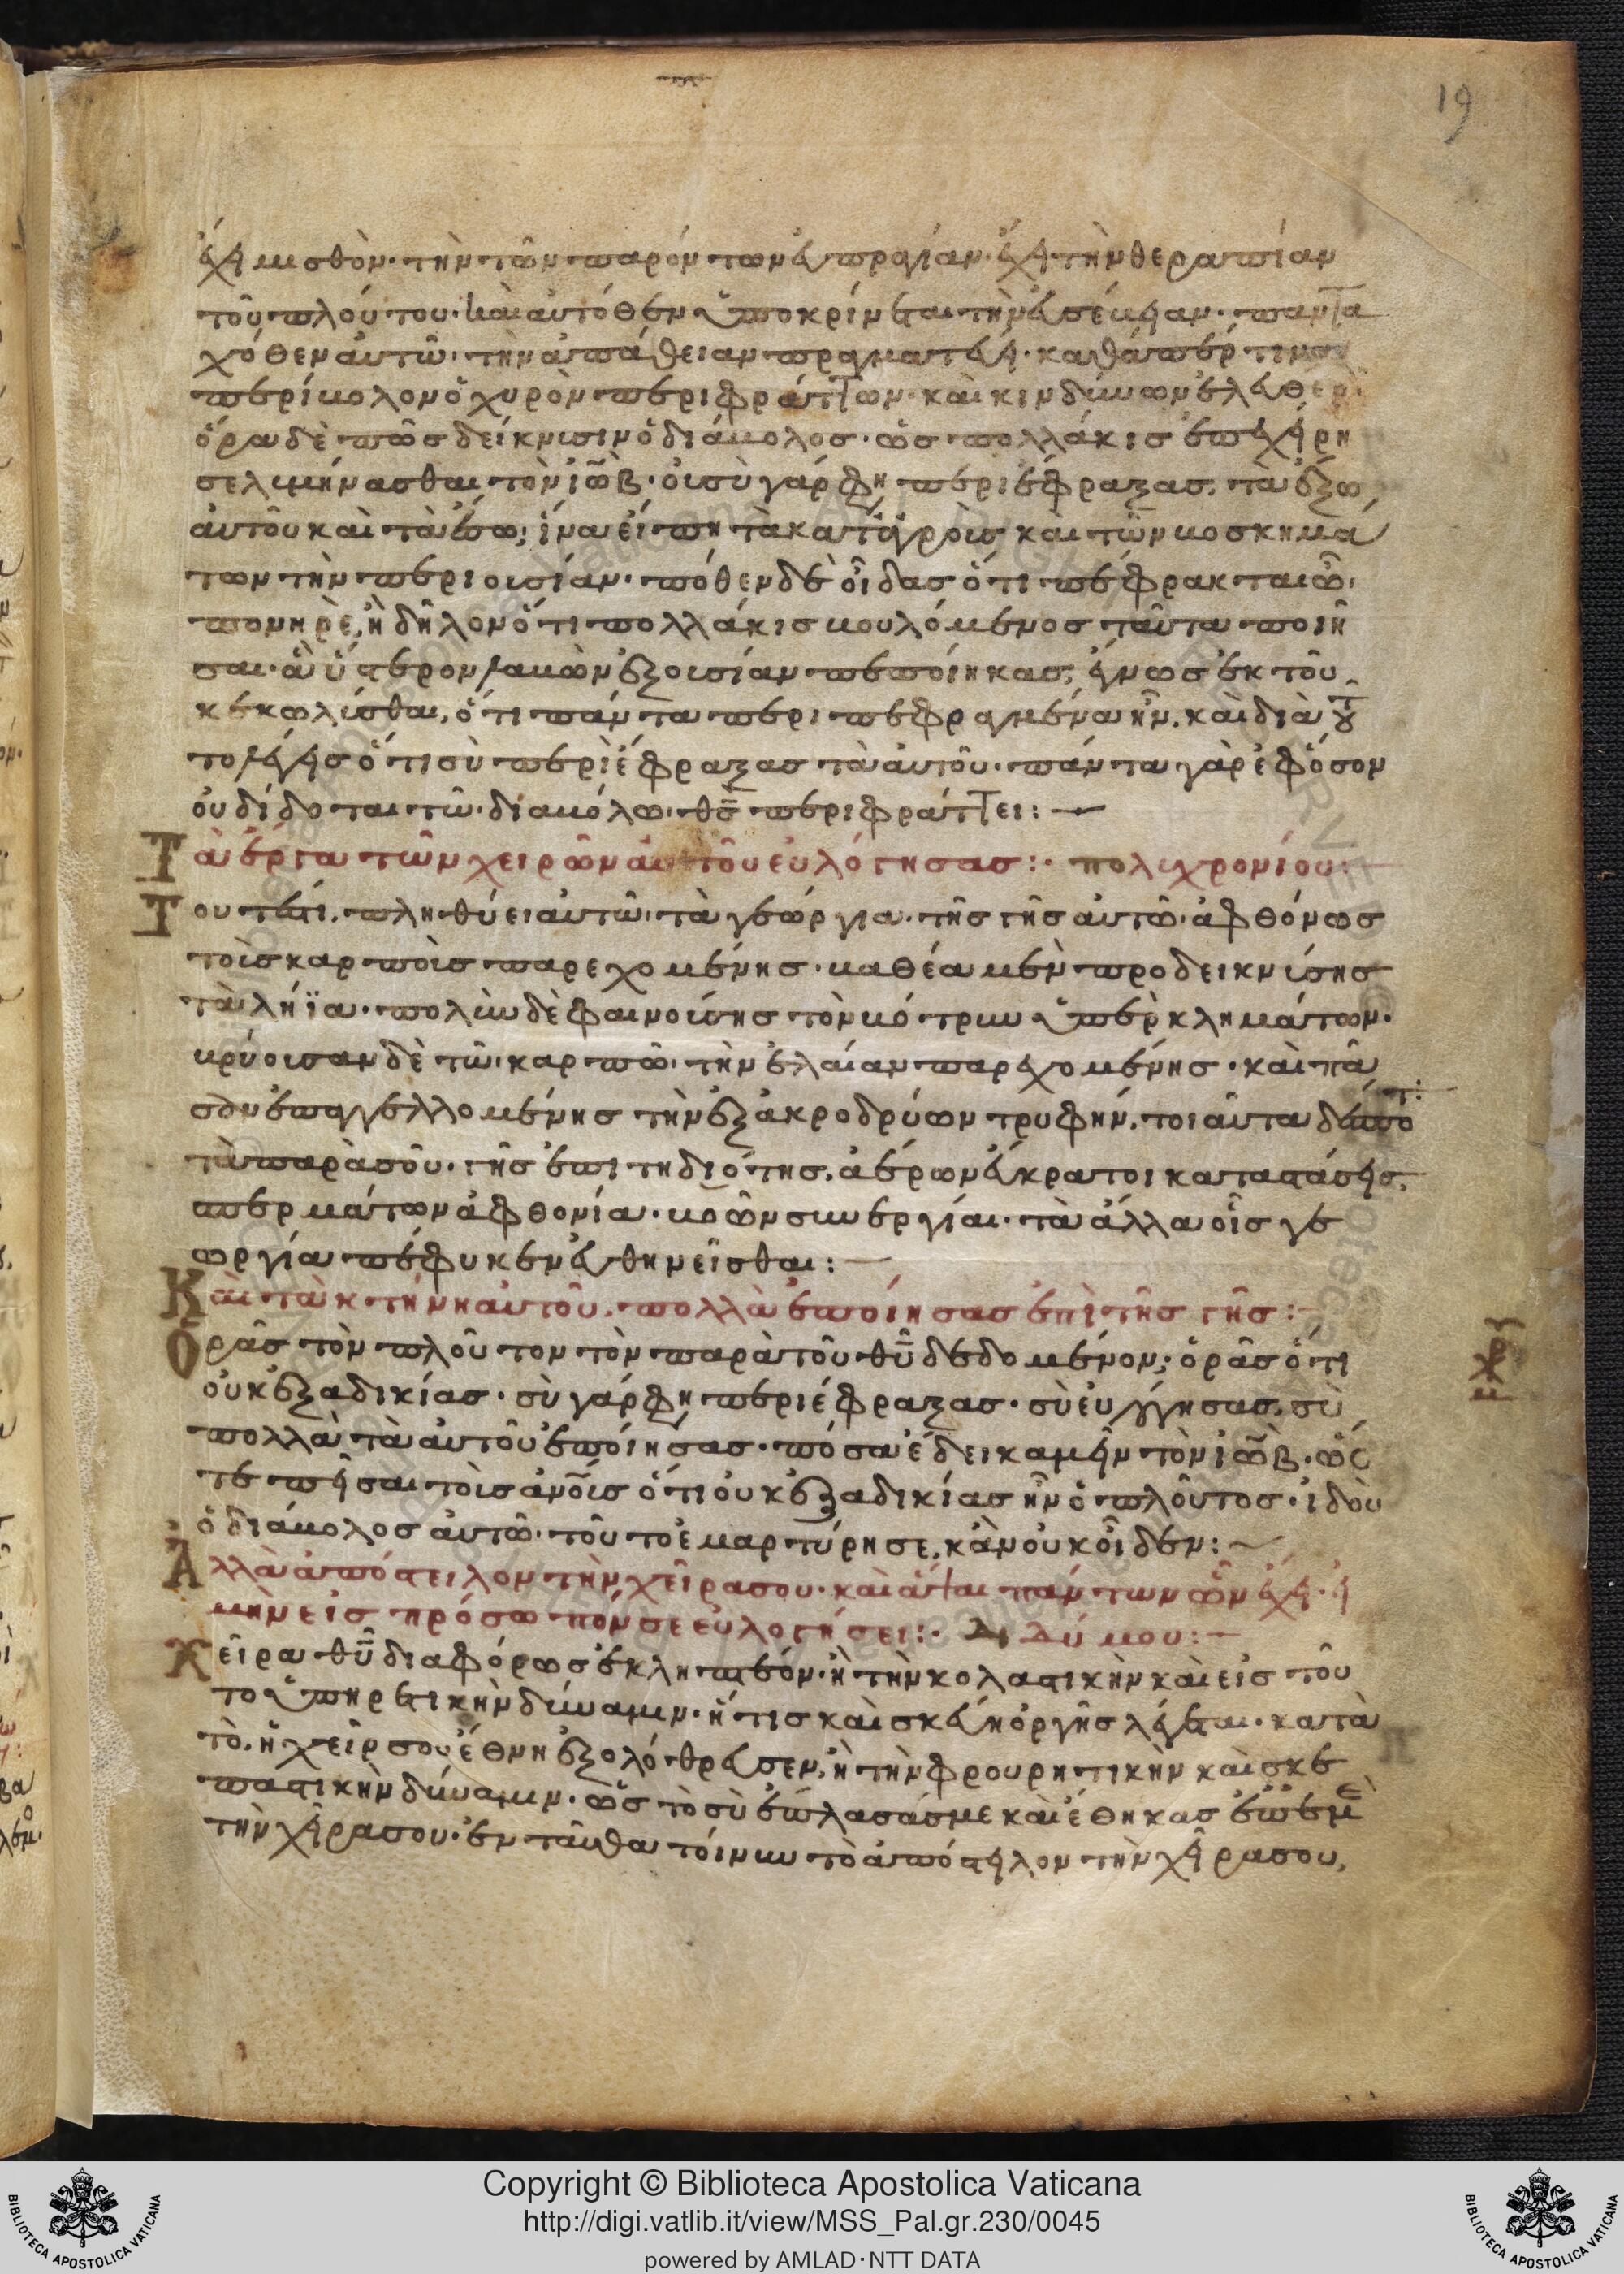 19
ἔχει μισθὸν· τὴν τῶν παρόντων εὐπραγίαν· ἔχει τὴν θεραπείαν
τοῦ πλούτου· καὶ αὐτόθεν ὑποκρίνεται τὴν εὐσέβειαν· παντα
χόθεν αὐτῶ· τὴν ἀπάθειαν πραγματεύει· καθάπερ τινα
περίβολον ὀχυρὸν περιφράττων· καὶ κινδύνων ἐλευθερ
ὅρα δὲ πῶς δείκνυσιν ὁ διάβολος· ὡς πολλάκις ἐπεχείρη
σε λυμήνασθαι τὸν ἰὼβ· οὐ σὺ γάρ φη περιέφραξας, τὰ ἔξω
αὐτοῦ καὶ τὰ ἔσω; ἵνα εἴπη τὰ κατ ἀγροὺς καὶ τῶν βοσκημά
των τὴν περιουσίαν· πόθεν δὲ οἶδας ὅτι πέφρακται ὦ
πονηρὲ, ἢ δῆλον ὅτι πολλάκις βουλόμενος ταῦτα ποιῆ
σαι· ἃ ὕστερον λαβὼν ἐξουσίαν πεποίηκας, ἔγνως ἐκ τοῦ
κεκωλύσθαι, ὅτι πάντα περιπεφραγμένα ἦν. καὶ διὰ τοῦ
το λέγεις ὅτι σὺ περιέφραξας τὰ αὐτοῦ· πάντα γὰρ ἐφόσον
οὐ δίδοται τῶ διαβόλω· θς περιφράττει:
Τὰ ἔργα τῶν χειρῶν αὐτοῦ εὐλόγησας:· πολυχρονίου:
Τουτέστι. πληθύει αὐτῶ τὰ γεώργια· τῆς γῆς αὐτῶ ἀφθόνως
τοῖς καρποῖς παρεχομένης· βαθέα μὲν προδεικνύσης
τὰ λήϊα· πολὺν δὲ φαινούσης τὸν βότρυν ὑπὲρ κλημάτων·
βρύουσαν δὲ τῶ καρπῶ τὴν ἐλαίαν παρεχομένης· καὶ πᾶ
σαν ἐπαγγελλομένης τὴν ἐξ ἀκροδρύων τρυφήν. τοιαῦτα δέσπο
τὰ παρὰ σοῦ· γῆς ἐπιτηδιότης, ἀέρων εὔκρατοι καταστάσεις,
σπερμάτων ἀφθονία· βοῶν συνεργίαι· τὰ ἄλλα οἷς γε
ωργία πέφυκεν εὐθηνεῖσθαι:
Καὶ τὰ κτήνη αὐτοῦ. πολλὰ ἐποίησας ἐπὶ τῆς γῆς:
Ὁρᾶς τὸν πλοῦτον τὸν παρὰ τοῦ θυ δεδομένον; ὁρᾶς ὅτι
οὐκ ἐξ ἀδικίας· σὺ γάρ φη περιέφραξας· σὺ εὐλόγησας, σὺ
πολλὰ τὰ αὐτοῦ ἐποίησας· πόσα ἔδει καμεῖν τὸν ἰὼβ· ὥς
τε πεῖσαι τοῖς ανοις ὅτι οὐκ ἐξ ἀδικίας ἦν ὁ πλοῦτος· ἰδοὺ
ὁ διάβολος αὐτῶ τοῦτο ἐμαρτύρησε, κἂν οὐκ οἶδεν:
Ἀλλὰ ἀπόστειλον τὴν χεῖρα σου· καὶ ἅψαι πάντων ὧν ἔχει· εἰ
μὴν εἰς πρόσωπόν σε εὐλογήσει:· Διδύμου:
Χεῖρα θυ διαφόρως ἐκληπτέον· ἢ τὴν κολαστικὴν καὶ εἰς τοῦ
το ὑπηρετικὴν δύναμιν· ἥτις καὶ σκεύη ὀργῆς λέγεται· κατὰ
τὸ. ἡ χεῖρ σου ἔθνη ἐξολόθρευσεν, ἢ τὴν φρουρητικὴν καὶ σκε
παστικὴν δύναμιν· ὡς τὸ σὺ ἔπλασάς με καὶ ἔθηκας ἐπ ἐμὲ
τὴν χεῖρα σου· ἐνταῦθα τοίνυν τὸ ἀπόστειλον τὴν χεῖρα σου,
Copyright © Biblioteca Apostolica Vaticana
http://digi.vatlib.it/view/MSS_Pal.gr.230/0045
powered by AMLAD·NTT DATA
BIBLIOTECA APOSTOLICA VATICANA
BIBLIOTECA APOSTOLICA VATICANA